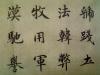 踐土會
法韓弊
牧用軍
漠馳譽